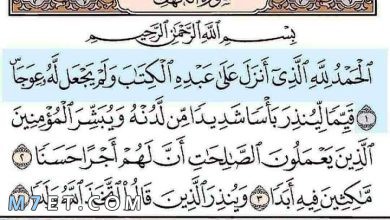 سورة الكهف
بِسْمِ اللَّهِ الرَّحْمَٰنِ الرَّحِيمِ
الْحَمْدُ لِلَّهِ الَّذِي أَنْزَلَ عَلَىٰ عَبْدِهِ الْكِتَابَ وَلَمْ يَجْعَلْ لَهُ عِوَجًا
١ قَيِّمًا لِيُنْذِرَ بَأْسًا شَدِيدًا مِنْ لَدُنْهُ وَيُبَشِّرَ الْمُؤْمِنِينَ
الَّذِينَ يَعْمَلُونَ الصَّالِحَاتِ أَنَّ لَهُمْ أَجْرًا حَسَنًا ٢
مَاكِثِينَ فِيهِ أَبَدًا ٣ وَيُنْذِرَ الَّذِينَ قَالُوا اتَّخَذَ اللَّهُ وَلَدًا
M7ET.COM